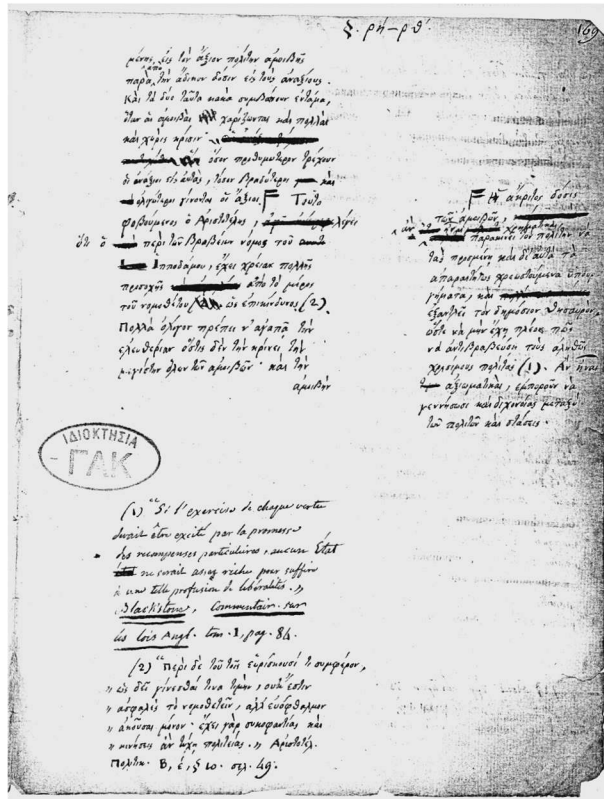 ξ. ρή – ρθ΄.
169
μένης εἰς τὸν ἄξιον πολίτην ἀμοιβῆς
παρὰ τὴν ἄδικον δόσιν εἰς τοὺς ἀναξίους.
Καὶ τὰ δύο ταῦτα κακὰ συμβαίνουν ἐντάμα,
ὅταν αἱ ἀμοιβαὶ χαρίζωνται καὶ πολλαὶ
καὶ χωρὶς κρίσιν
ὅσον προθυμότερον τρέχουν
οἱ ἀνάξιοι εἰς αὐτὰς, τόσον βραδύτεροι καὶ
ὀλιγώτεροι γίνονται οἱ ἄξιοι. Τοῦτο
φοβούμενος ὁ Ἀριστοτέλης, λέγει
ὅτι ὁ περὶ τῶν βραβείων νόμος τοῦ
Ἱπποδάμου, ἔχει χρείαν πολλῆς
προσοχῆς ἀπὸ τὸ μέρος
τοῦ νομοθέτου, ὡς ἐπικίνδυνος (2).
Πολλὰ ὀλίγον πρέπει ν' ἀγαπᾷ τὴν
ἐλευθερίαν ὅστις δὲν τὴν κρίνει τὴν
μεγίστην ὅλων τῶν ἀμοιβῶν· καὶ τὴν
ἀμοιβὴν
Ἡ ἄκριτος δόσις
τῶν ἀμοιβῶν,
παρακινεῖ τὸν πολίτην νὰ
τὰς προσμένῃ καὶ δι' αὐτὰ τὰ
ἀπαραιτήτως χρεωστούμενα ὑπουρ-
γήματα, καὶ
ἐξαντλεῖ τὸν δημόσιον θησαυρὸν,
ὥστε νὰ μὴν ἔχῃ πλέον πῶς
νὰ ἀντιβραβεύσῃ τοὺς ἀληθῶς
χρησίμους πολίτας (1). Ἂν ἦναι
ἀξιωματικαὶ, ἐμποροῦν νὰ
γεννήσωσι καὶ διχονοίας μεταξὺ
τῶν πολιτῶν καὶ στάσεις.
ΙΔΙΟΚΤΗΣΙΑ
ΓΑΚ
(1) "Si l'exercice de chaque vertu
devait être excité par la promesse
des recompenses particulières, aucun État
ne serait assez riche pour suffire
à une telle profusion de libéralités. „
Blackstone, Commentair. sur
les lois Angl. tom. 1, pag. 84.
(2) "Περὶ δὲ τοῦ τοῖς εὑρίσκουσί τι συμφέρον,
„ ὡς δεῖ γίνεσθαί τινα τιμὴν, οὐκ ἔστιν
„ ἀσφαλὲς τὸ νομοθετεῖν, ἀλλ' εὐόφθαλμον
„ ἀκοῦσαι μόνον· ἔχει γὰρ συκοφαντίας καὶ
„ κινήσεις ἂν τύχῃ πολιτείας. „ Ἀριστοτέλ.
Πολιτικ. Β, έ, § 10. σελ. 49.